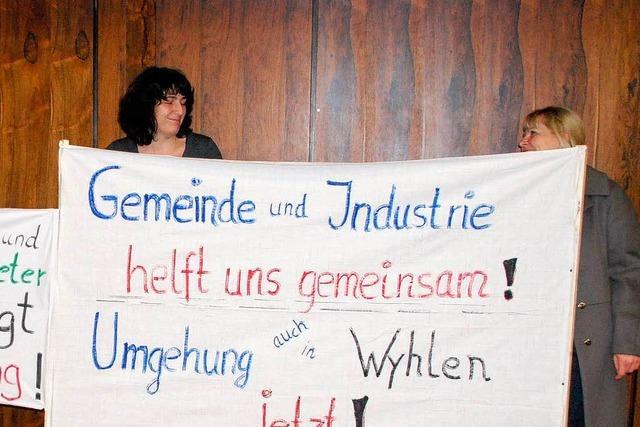 Gemeinde und Industrie
helft uns gemeinsam!
Umgehung auch in Wyhlen
jetzt!
und
eter
gt
g!